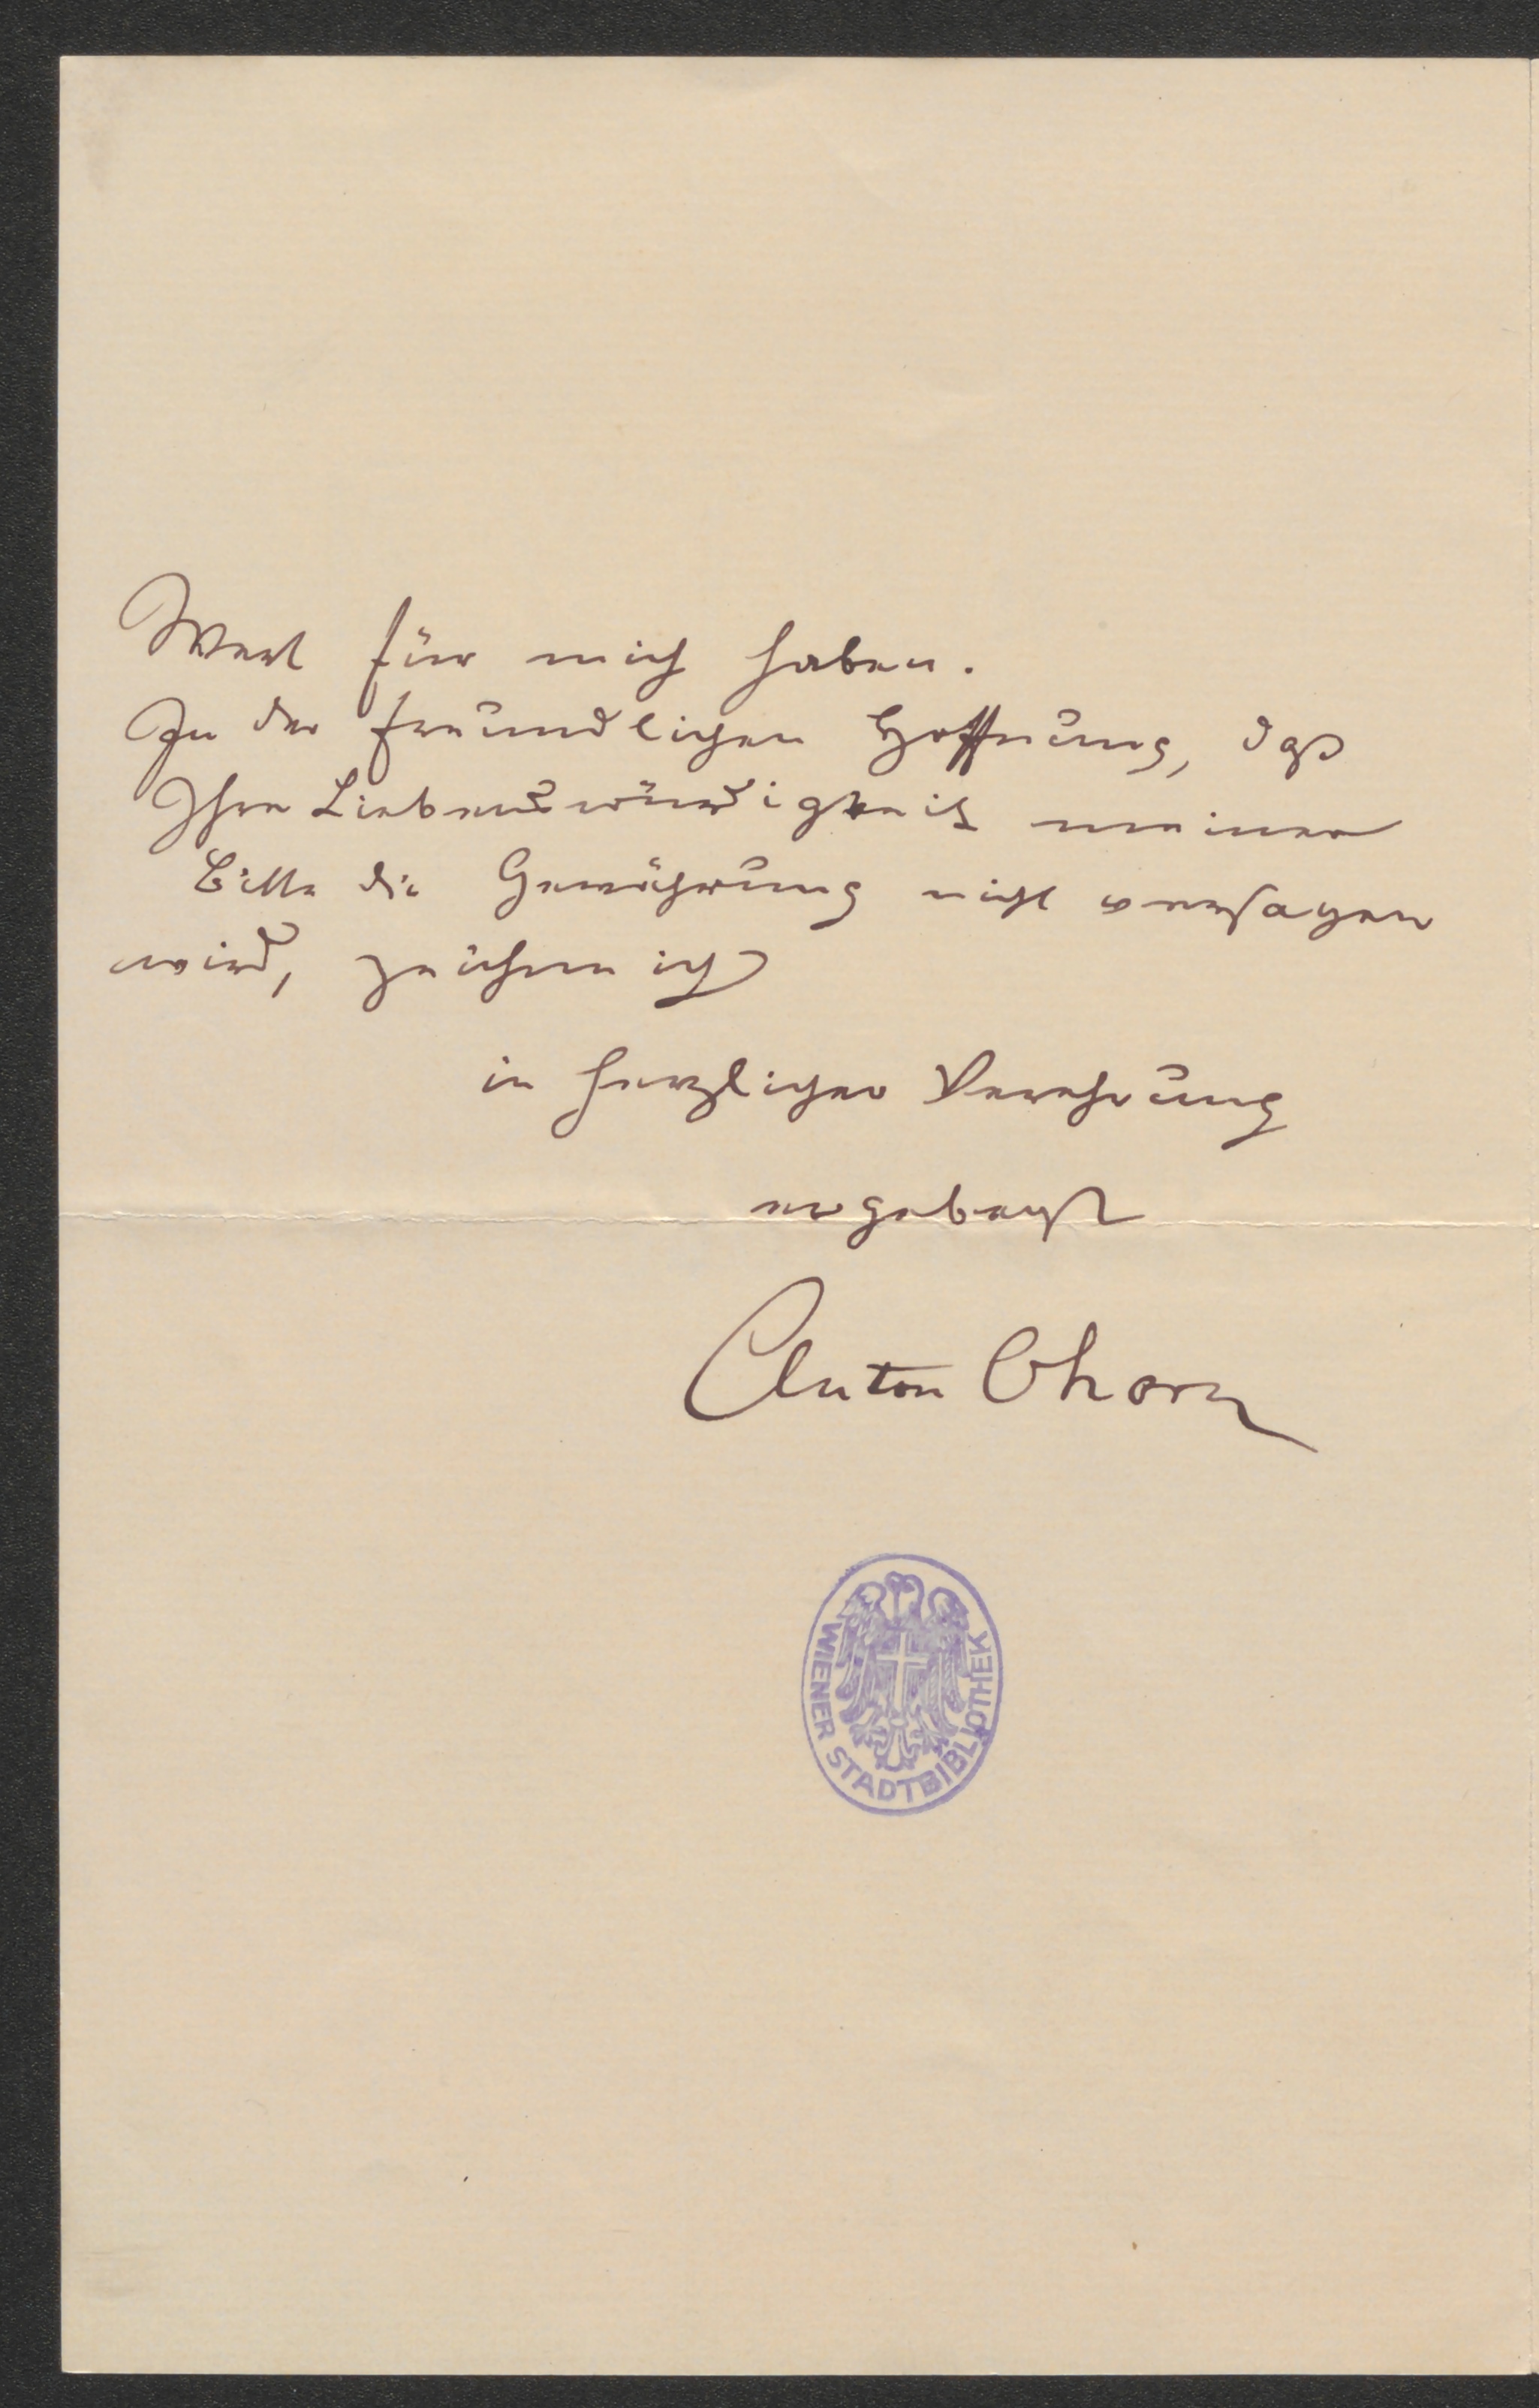 Wert für mich haben.
In der freundlichen Hoffnung, daß
Ihre Liebenswürdigkeit meiner
Bitte die Gewährung nicht versagen
wird, zeichne ich
in herzlicher Verehrung
ergebenst
Anton Ohorn
WIENER STADTBIBLIOTHEK